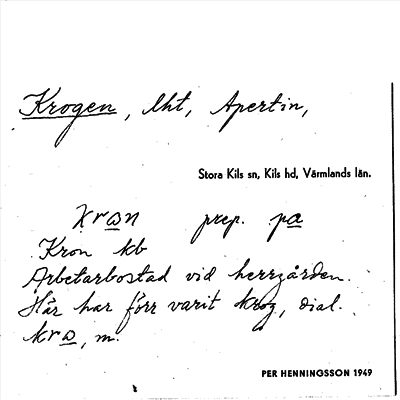 Krogen, lht, Apertin,
Stora Kils sn, Kils hd, Värmlands län.
krɷn prep. pɑ
Kron kb
Arbetarbostad vid herrgården.
Här har förr varit krog, dial.
krɷ, m.
PER HENNINGSSON 1949